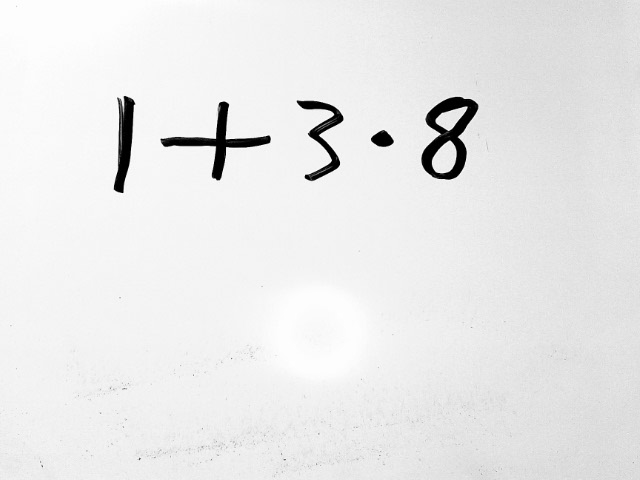 1 + 3 · 8